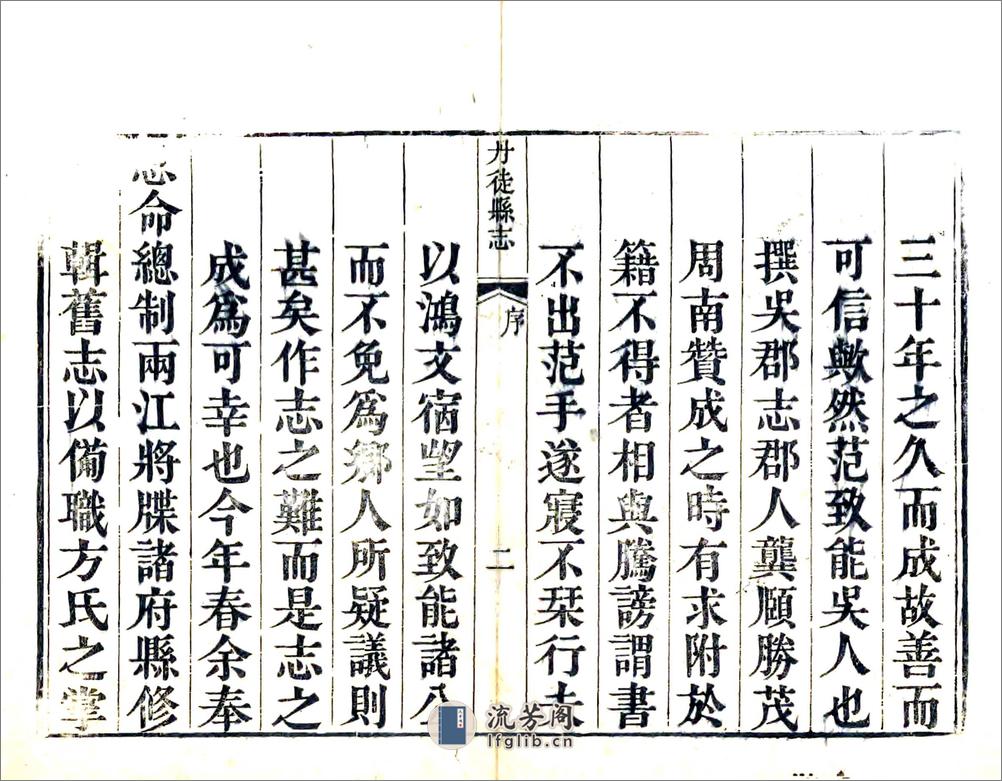 三十年之久而成故善而
可信歟然范致能吳人也
撰吳郡志郡人龔頤勝茂
周南贊成之時有求附於
籍不得者相與騰謗謂書
不出范手遂寢不栞行夫
丹徒縣志
序
二
以鴻文宿望如致能諸公
而不免爲鄉人所疑議則
甚矣作志之難而是志之
成爲可幸也今年春余奉
命總制兩江將牒諸府縣修
輯舊志以備職方氏之掌
流芳阁
lfglib.cn